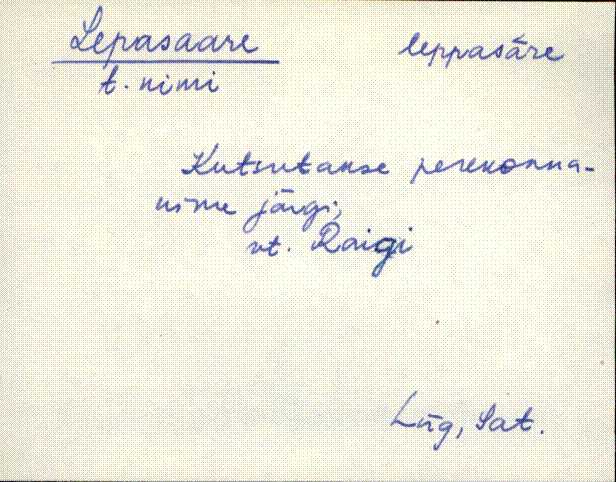 Lepasaare leppasāre
t. nimi
Kutsutakse perekonna-
nime järgi,
vt. Raigi
Lüg, Sat.